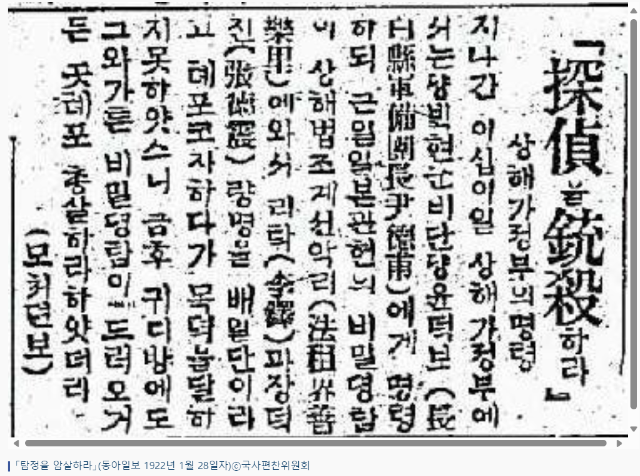 「探偵을 銃殺하라」
상해가정부의명령
지나간 이십이일 상해가정부에
서는댱빅현군비단댱윤덕보(長
白縣軍備團長尹德甫)에게 명령
하되 근일일본관헌의 비밀뎡탐
이 상해법조게선악리(法租界善
樂里)에와서 리탁(李鐸)과장덕
진(張德震) 량명을 배일단이라
고 톄포코자하다가 목뎍을달하
지못하얏스니 금후 귀디방에도
그와가튼 비밀뎡탐이 드러오거
든 곳톄포 총살하라하얏더라
(모처뎐보)
「탐정을 암살하라」(동아일보 1922년 1월 28일자)ⓒ국사편찬위원회